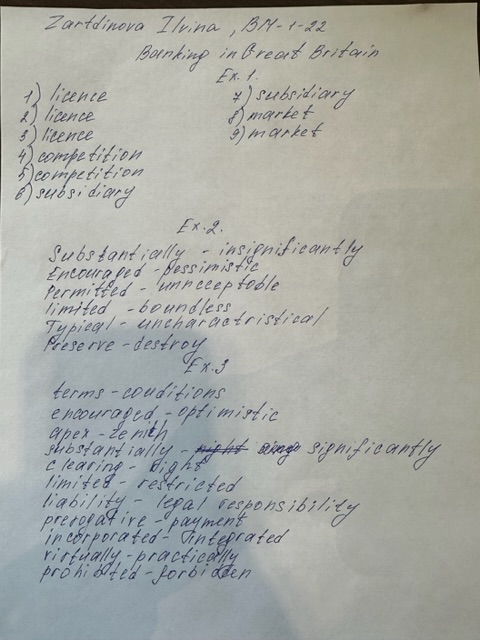 Zartdinova Ilvina, BM-1-22
Banking in Great Britain
Ex. 1.
1) licence
2) licence
3) licence
4) competition
5) competition
6) subsidiary
7) subsidiary
8) market
9) market
Ex. 2.
Substantially - insignificantly
Encouraged - pessimistic
Permitted - unncceptoble
limited - boundless
Typical - uncharactristical
Preserve - destroy
Ex. 3
terms - conditions
encouraged - optimistic
apex - zenith
substantially - significantly
clearing - right
limited - restricted
liability - legal responsibility
prerogative - payment
incorporated - integrated
virtually - practically
prohibited - forbidden